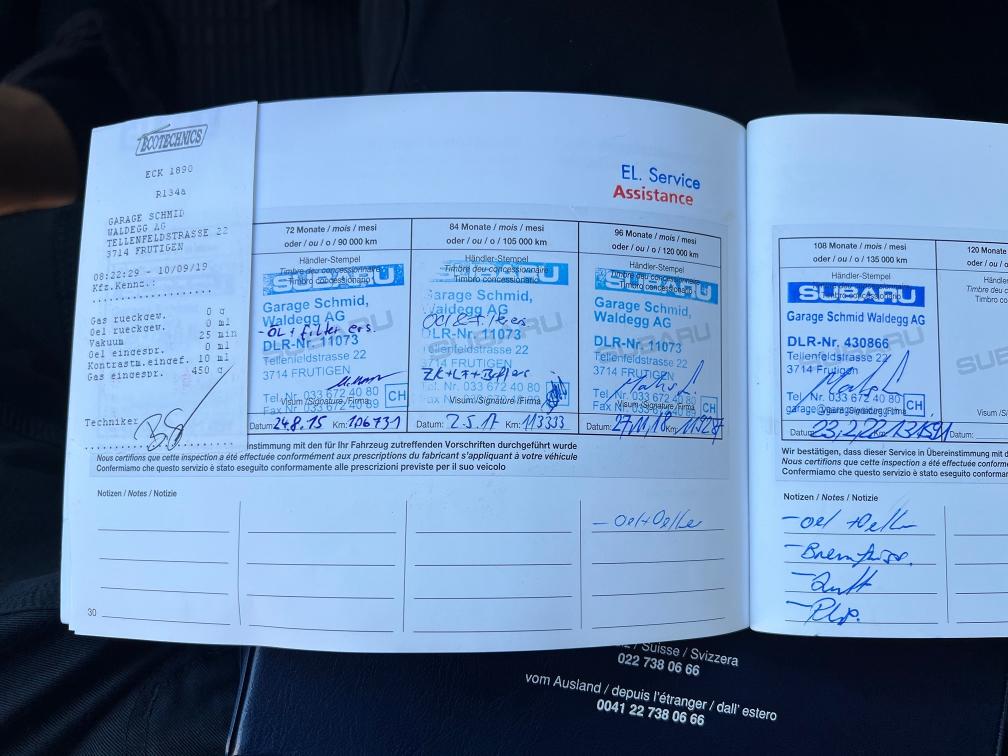 ECOTECHNICS
ECK 1890
R134a
GARAGE SCHMID
WALDEGG AG
TELLENFELDSTRASSE 22
3714 FRUTIGEN
08:22:29 - 10/09/19
Kfz.Kennz.:
Gas rueckgew. 0 g
Oel rueckgew. 0 ml
Vakuum 25 min
Oel eingespr. 0 ml
Kontrastm.eingef. 10 ml
Gas eingespr. 450 g
Techniker
EL. Service
Assistance
72 Monate / mois / mesi
oder / ou / o / 90 000 km
Händler-Stempel
Timbre du concessionnaire
Timbro concessionario
SUBARU
Garage Schmid,
Waldegg AG
- ÖL + Filter ers.
DLR-Nr. 11073
Tellenfeldstrasse 22
3714 FRUTIGEN
Tel. Nr. 033 672 40 80
Visum / Signature / Firma
CH
Datum: 24.8.15 Km: 106731
84 Monate / mois / mesi
oder / ou / o / 105 000 km
Händler-Stempel
Timbre du concessionnaire
Timbro concessionario
SUBARU
Garage Schmid,
Waldegg AG
DLR-Nr. 11073
Tellenfeldstrasse 22
3714 FRUTIGEN
Tel. Nr. 033 672 40 80
Visum / Signature / Firma
Datum: 2.5.17 Km: 113333
96 Monate / mois / mesi
oder / ou / o / 120 000 km
Händler-Stempel
Timbre du concessionnaire
Timbro concessionario
SUBARU
Garage Schmid,
Waldegg AG
DLR-Nr. 11073
Tellenfeldstrasse 22
3714 FRUTIGEN
Tel. Nr. 033 672 40 80
Visum / Signature / Firma
CH
Datum: 27.11.18 Km:
instimmung mit den für Ihr Fahrzeug zutreffenden Vorschriften durchgeführt wurde
Nous certifions que cette inspection a été effectuée conformément aux prescriptions du fabricant s'appliquant à votre véhicule
Confermiamo che questo servizio è stato eseguito conformamente alle prescrizioni previste per il suo veicolo
Notizen / Notes / Notizie
30
108 Monate / mois / mesi
oder / ou / o / 135 000 km
Händler-Stempel
Timbre du concessionnaire
Timbro concessionario
SUBARU
Garage Schmid Waldegg AG
DLR-Nr. 430866
Tellenfeldstrasse 22
3714 Frutigen
Tel. Nr. 033 672 40 80
CH
Datum: 23.2.22 Km:
120 Monate
oder / ou / o
Händler
Timbre du co
Timbro con
Visum / S
Datum:
Wir bestätigen, dass dieser Service in Übereinstimmung mit d
Nous certifions que cette inspection a été effectuée conformém
Confermiamo che questo servizio è stato eseguito conformamen
Notizen / Notes / Notizie
- Luft
/ Suisse / Svizzera
022 738 06 66
vom Ausland / depuis l'étranger / dall' estero
0041 22 738 06 66